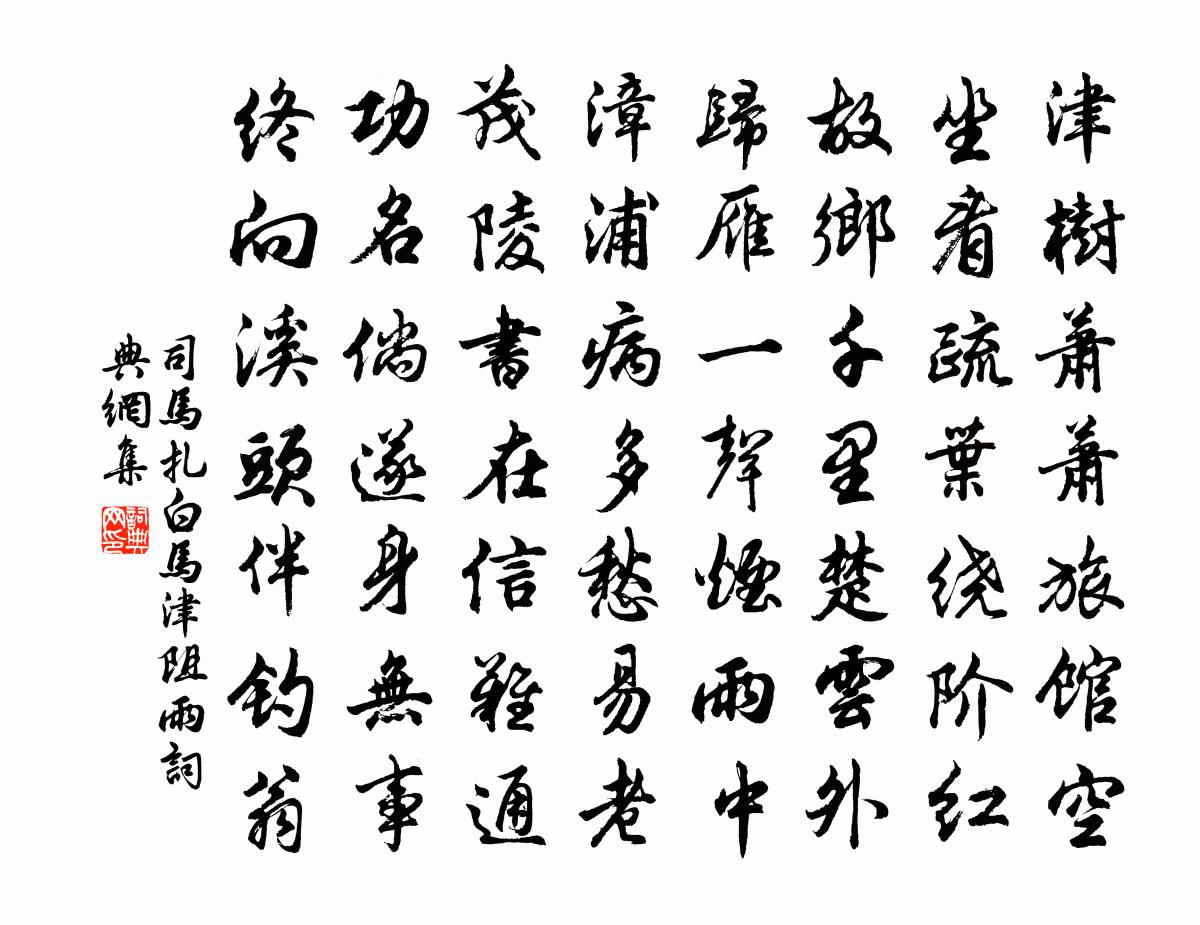 津樹蕭蕭旅館空
坐看疏葉绕阶红
故鄉千里楚雲外
歸雁一聲煙雨中
漳浦病多愁易老
茂陵書在信難通
功名倘遂身無事
終向溪頭伴釣翁
司馬扎白馬津阻雨詞
典網集
詞典
网印